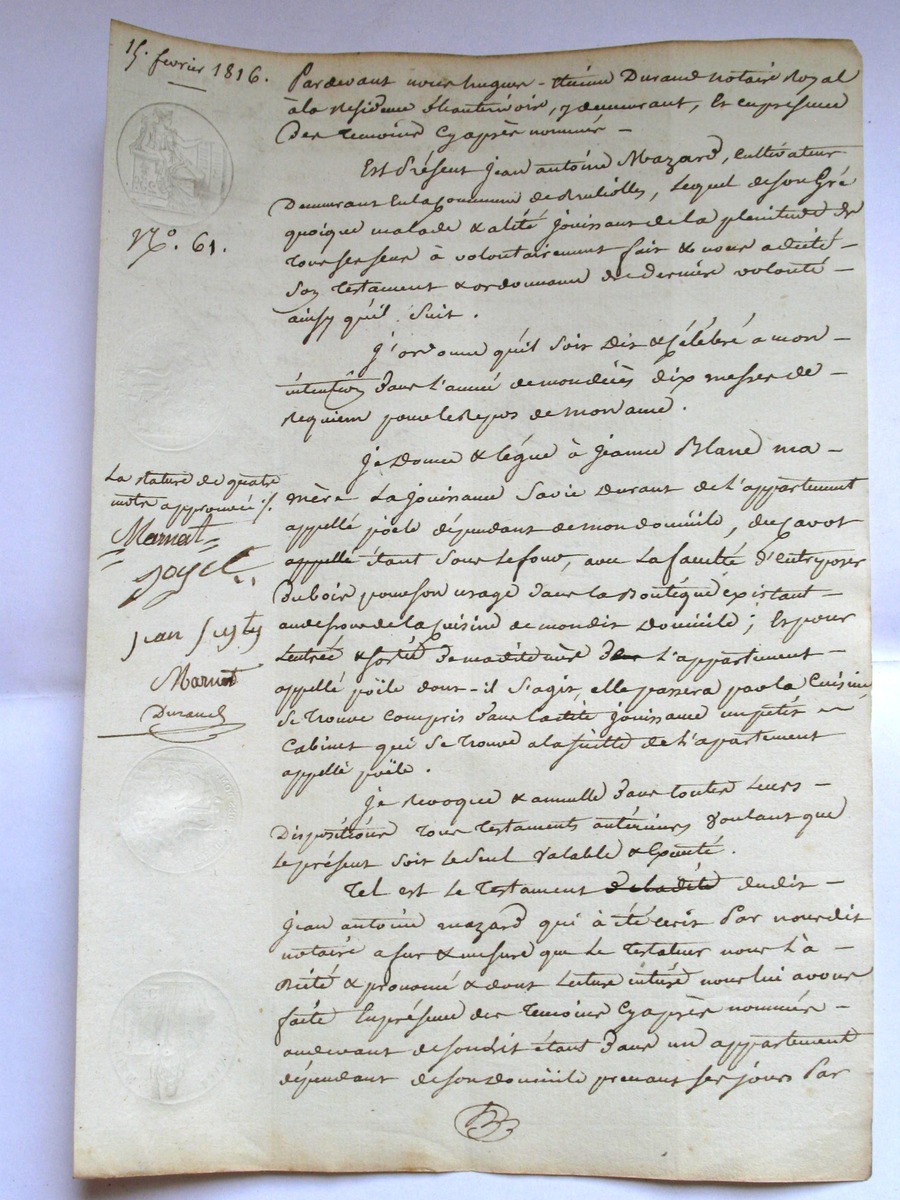 15. fevrier 1816.
Pardevant nous hugues-Etienne Durand notaire Royal
à la Residence d'hauterivoire, y demeurant, Et en présence
Des temoins Cy après nommés –
Est Présent Jean antoine Mazard, Cultivateur
Demeurant En la Commune de Brullioles, Lequel de Son Gré
quoique malade & alité Jouissant de la plenitude de
tous ses sens à volontairement fait & nous a dicté –
Son testament & ordonnance de derniere volonté –
ainsy qu'il Suit.
N.º 61.
J'ordonne qu'il soit Dit & Célébré a mon –
intention dans L'année de mon décès dix messes de –
Requiem pour le Repos de mon ame.
Je Donne & légue à Jeanne Blanc ma –
mère La jouissance Sa vie Durant de L'appartement
appellé poële dépendant de mon domicile, du Cavot
appellé étant Sous le four, avec La faculté d'entreposer
Du bois pour son usage dans la Boutique existant –
au dessous de la Cuisine de mon dit Domicile; Et pour
L'entrée & sortie de madite mère L'appartement –
appellé poële dont-il S'agit, elle passera par la Cuisine,
Se trouve Compris dans ladite Jouissance un petit
Cabinet qui Se trouve a la de L'apartement
appellé poële.
La rature de quatre
mots approuvée ./.
Marnat
Jean
Marnat
Durand
Je Revoque & annulle dans toutes Leurs –
Dispositions tous testaments antérieurs voulant que
Le présent Soit Le Seul valable & Exécuté.
Tel est Le Testament de ladite dudit –
Jean antoine mazard qui à été écrit Par nous dit
notaire a fur & mesure que Le Testateur nous L'à –
Dicté & prononcé & dont Lecture entière nous lui avons
faite En présence des temoins Cy après nommés –
au devant de sondit étant dans un appartement
dépendant de son domicile prenant ses jours Par